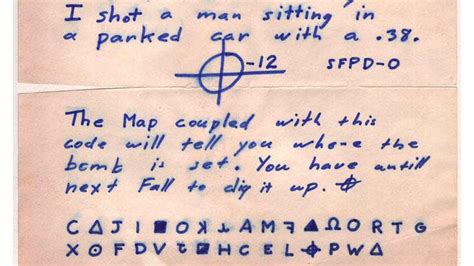 I shot a man sitting in
a parked car with a .38.
⌖-12 SFPD-0
The Map coupled with this
code will tell you where the
bomb is set. You have antill
next Fall to dig it up. ⌖
C Δ J I ■ O ꓘ ⅄ A M ꟻ ▲ Ω O R T G
X ⊙ F D V ■ H C E L ⌖ P W Δ